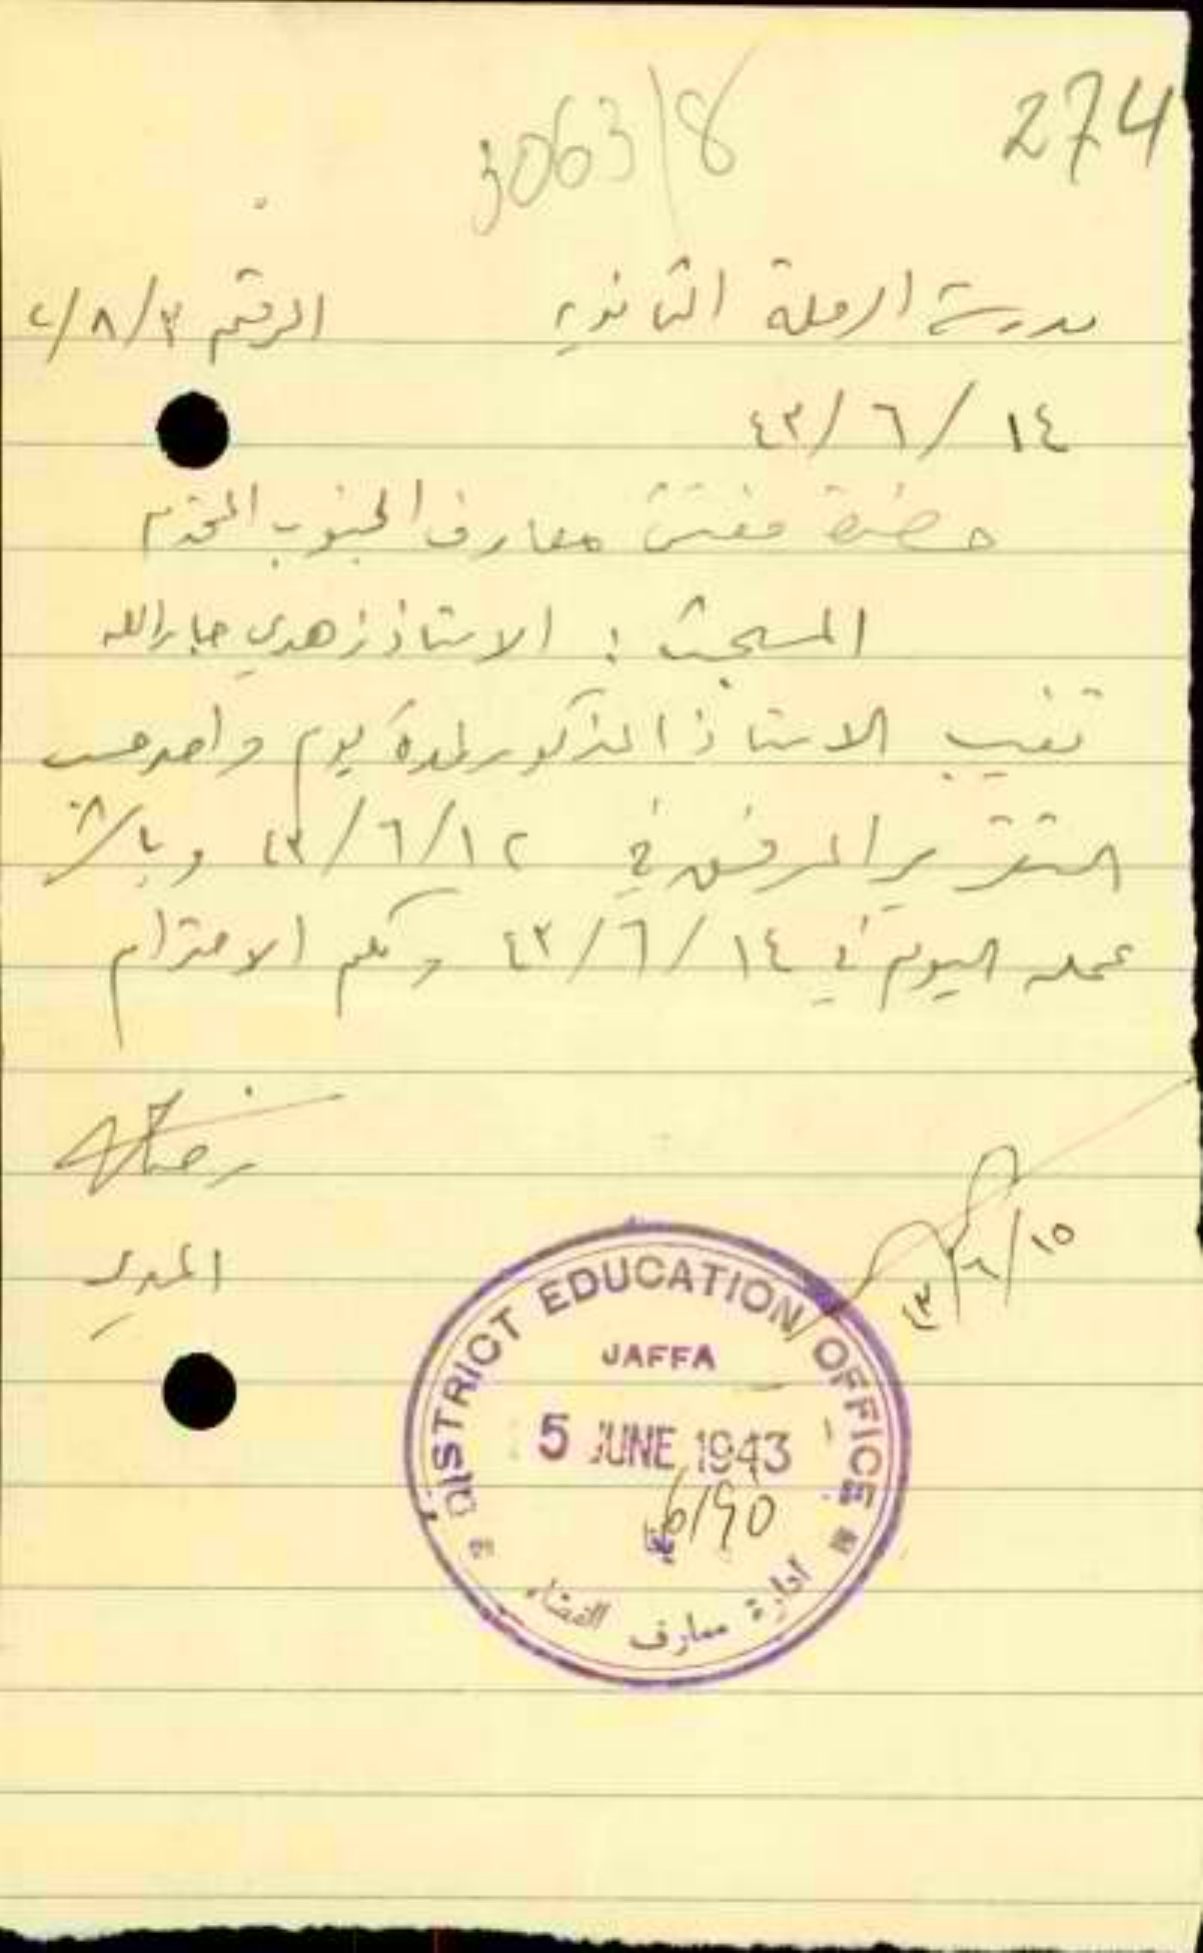 3063/8
274
مدرسة الرملة الثانوية الرقم ٢/٨/٣
١٤/٦/٤٣
حضرة مفتش معارف الجنوب المحترم
المبحث : الاستاذ زهدي جارالله
تغيب الاستاذ المذكور لمدة يوم واحد حسب
التقرير المرفق في ١٢/٦/٤٣ وباشر
عمله اليوم في ١٤/٦/٤٣ ولكم الاحترام
المدير
١٥/٦/٤٣
DISTRICT EDUCATION OFFICE
JAFFA
5 JUNE 1943
6/90
يافا
ادارة معارف القضاء